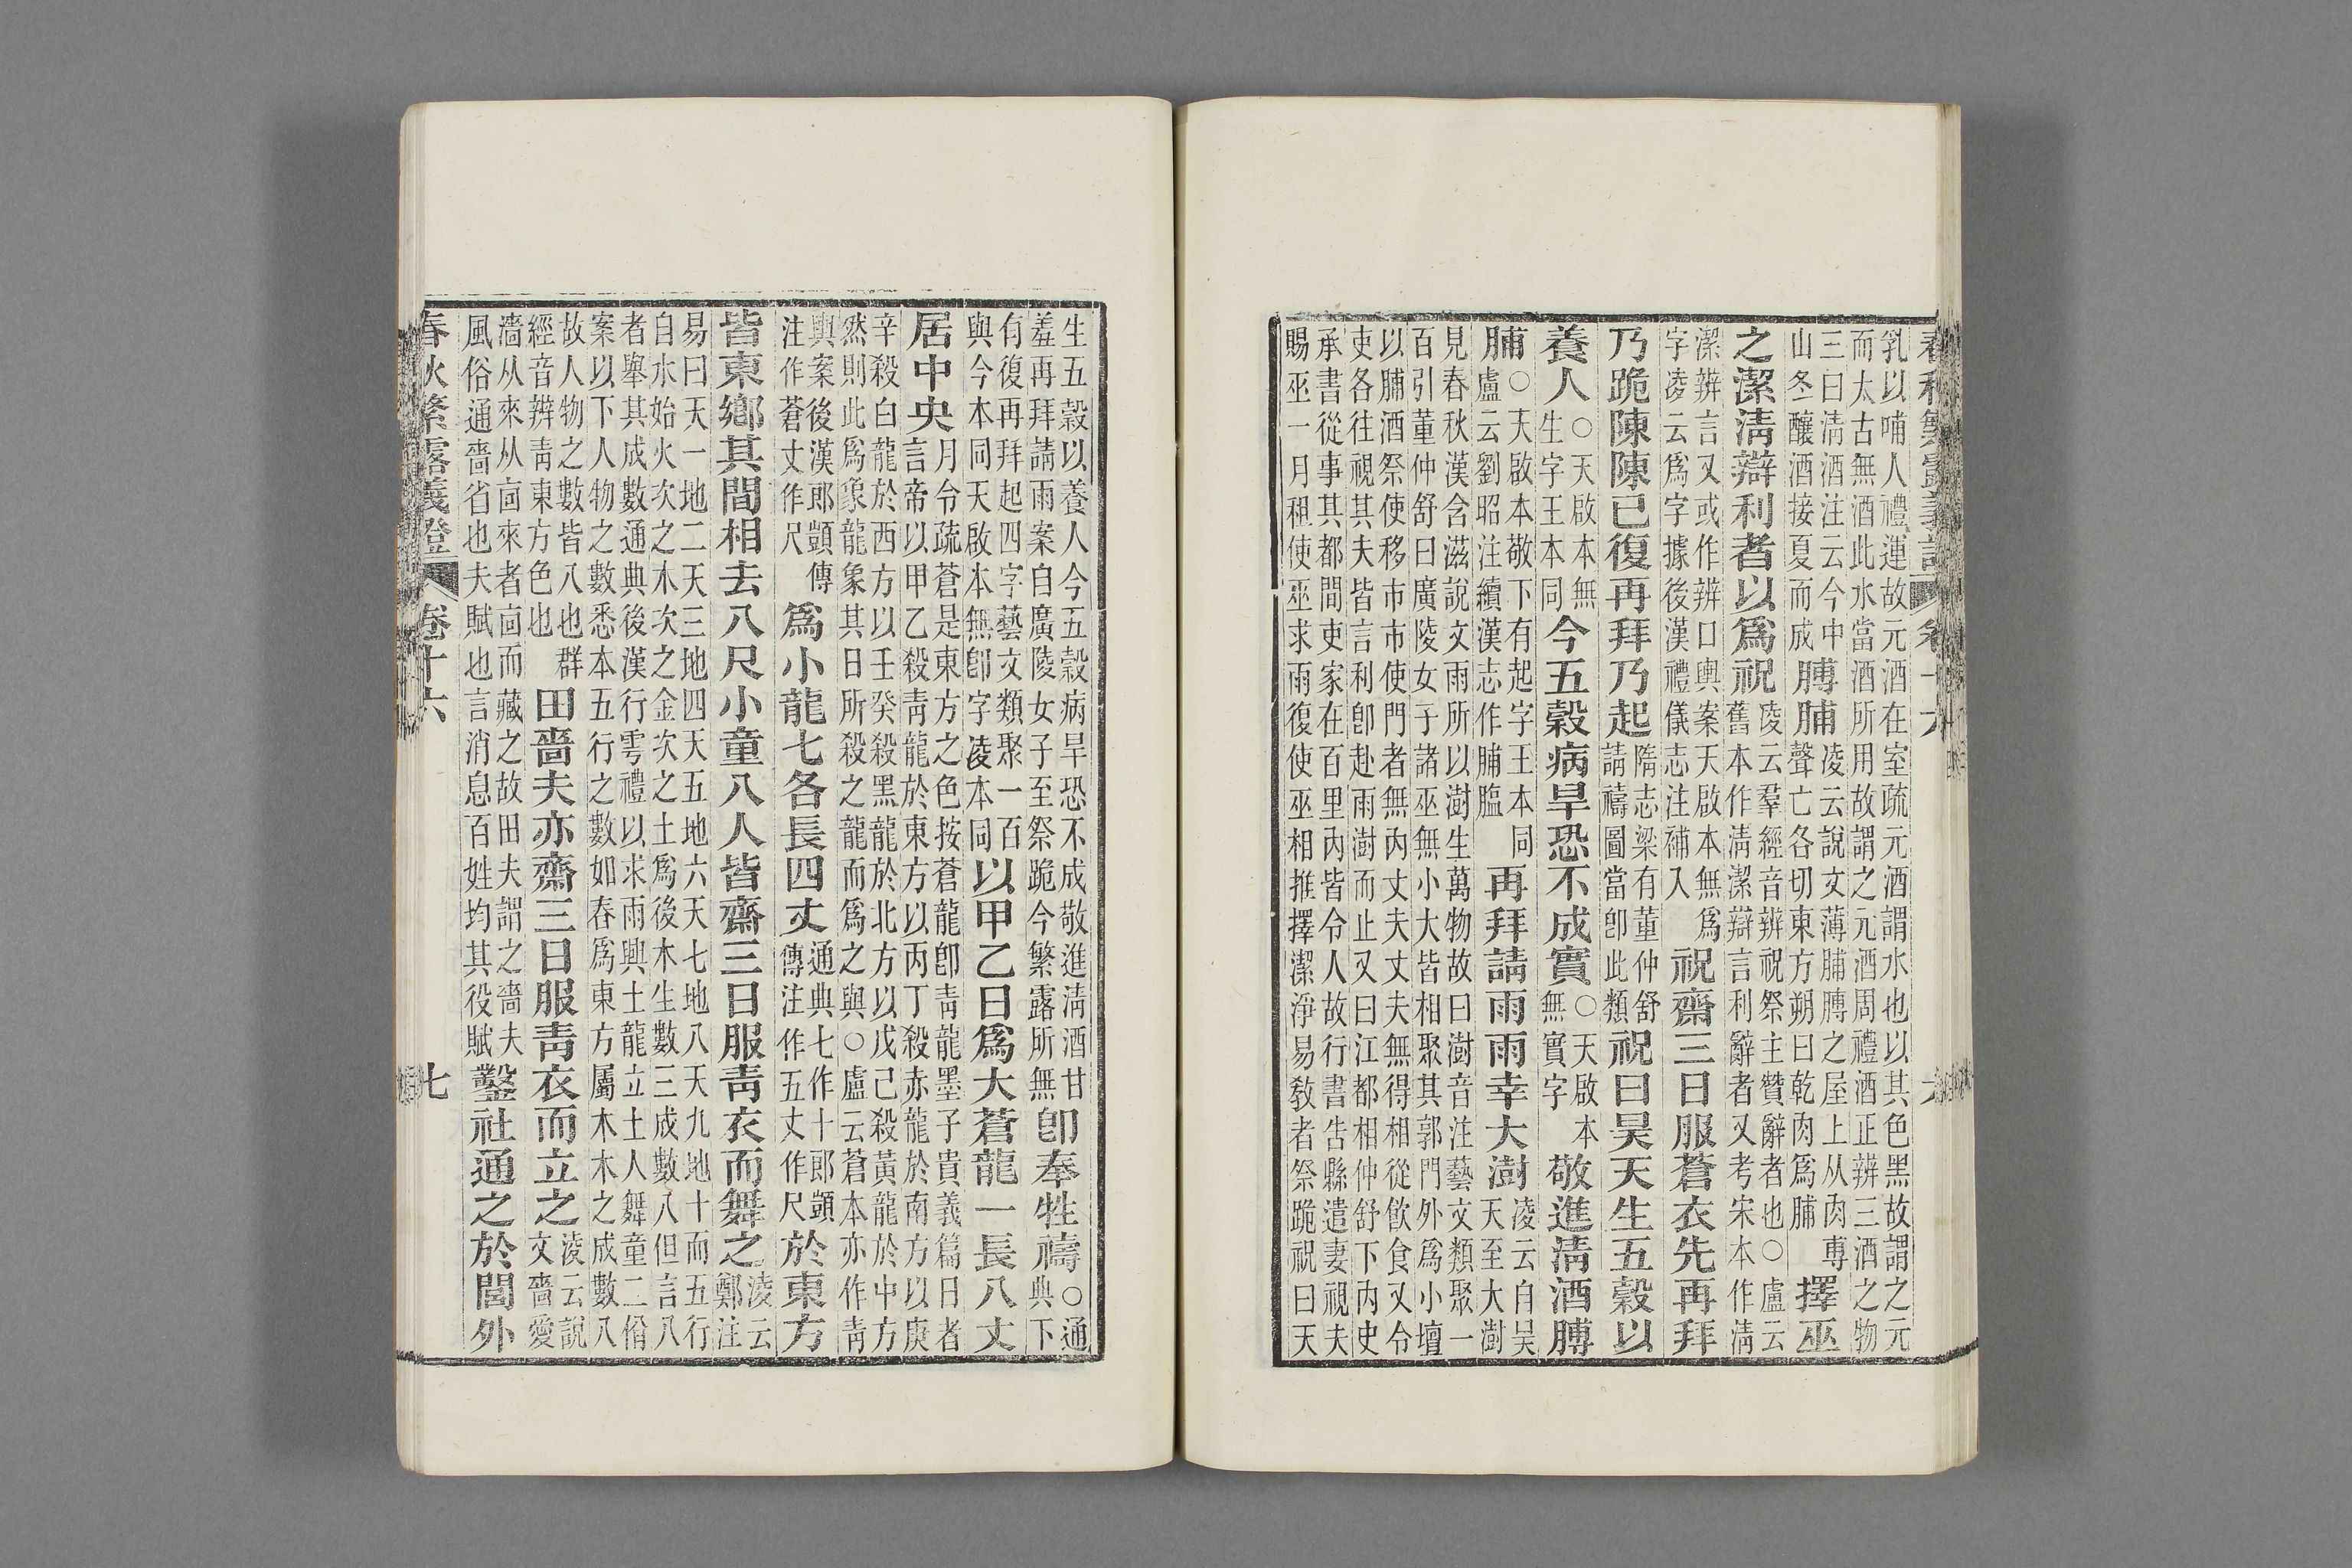 春秋繁露義證 卷十六 六
乳以哺人禮運故元酒在室疏元酒謂水也以其色黑故謂之元
而太古無酒此水當酒所用故謂之元酒周禮酒正辨三酒之物
三曰清酒注云今中山冬釀酒接夏而成膊脯凌云說文薄脯膊之屋上从肉尃聲亡各切東方朔曰乾肉爲脯擇巫
之潔清辯利者以爲祝凌云羣經音辨祝祭主贊辭者也○盧云舊本作清潔辯言利辭者又考宋本作清
潔辨言又或作辨口輿案天啟本無爲字凌云爲字據後漢禮儀志注補入祝齋三日服蒼衣先再拜
乃跪陳陳已復再拜乃起隋志梁有董仲舒請禱圖當卽此類祝曰昊天生五穀以
養人○天啟本無生字王本同今五穀病旱恐不成實○天啟本無實字敬進清酒膊
脯○天啟本敬下有起字王本同盧云劉昭注續漢志作脯膃再拜請雨雨幸大澍凌云自昊天至大澍
見春秋漢含滋說文雨所以澍生萬物故曰澍音注藝文類聚一
百引董仲舒曰廣陵女子諸巫無小大皆相聚其郭門外爲小壇
以脯酒祭使移市市使門者無內丈夫丈夫無得相從飮食又令
吏各往視其夫皆言利卽赴雨澍而止又曰江都相仲舒下內史
承書從事其都間吏家在百里內皆令人故行書告縣遣妻視夫
賜巫一月租使巫求雨復使巫相推擇潔淨易敎者祭跪祝曰天
生五穀以養人今五穀病旱恐不成敬進清酒甘羞再拜請雨案自廣陵女子至祭跪今繁露所無卽奉牲禱○通典下
有復再拜起四字藝文類聚一百與今本同天啟本無卽字凌本同以甲乙日爲大蒼龍一長八丈
居中央月令疏蒼是東方之色按蒼龍卽靑龍墨子貴義篇日者言帝以甲乙殺靑龍於東方以丙丁殺赤龍於南方以庚
辛殺白龍於西方以壬癸殺黑龍於北方以戊己殺黃龍於中方
然則此爲象龍象其日所殺之龍而爲之與○盧云蒼本亦作靑
輿案後漢郎顗傳注作蒼丈作尺爲小龍七各長四丈通典七作十郎顗傳注作五丈作尺於東方
皆東鄉其間相去八尺小童八人皆齋三日服靑衣而舞之淩云鄭注
易曰天一地二天三地四天五地六天七地八天九地十而五行
自水始火次之木次之金次之土爲後木生數三成數八但言八
者舉其成數通典後漢行雩禮以求雨興土龍立土人舞童二佾
案以下人物之數悉本五行之數如春爲東方屬木木之成數八
故人物之數皆八也群經音辨靑東方色也田嗇夫亦齋三日服靑衣而立之淩云說文嗇愛
濇从來从㐭來者㐭而藏之故田夫謂之嗇夫風俗通嗇省也夫賦也言消息百姓均其役賦鑿社通之於閭外
春秋繁露義證 卷十六 七